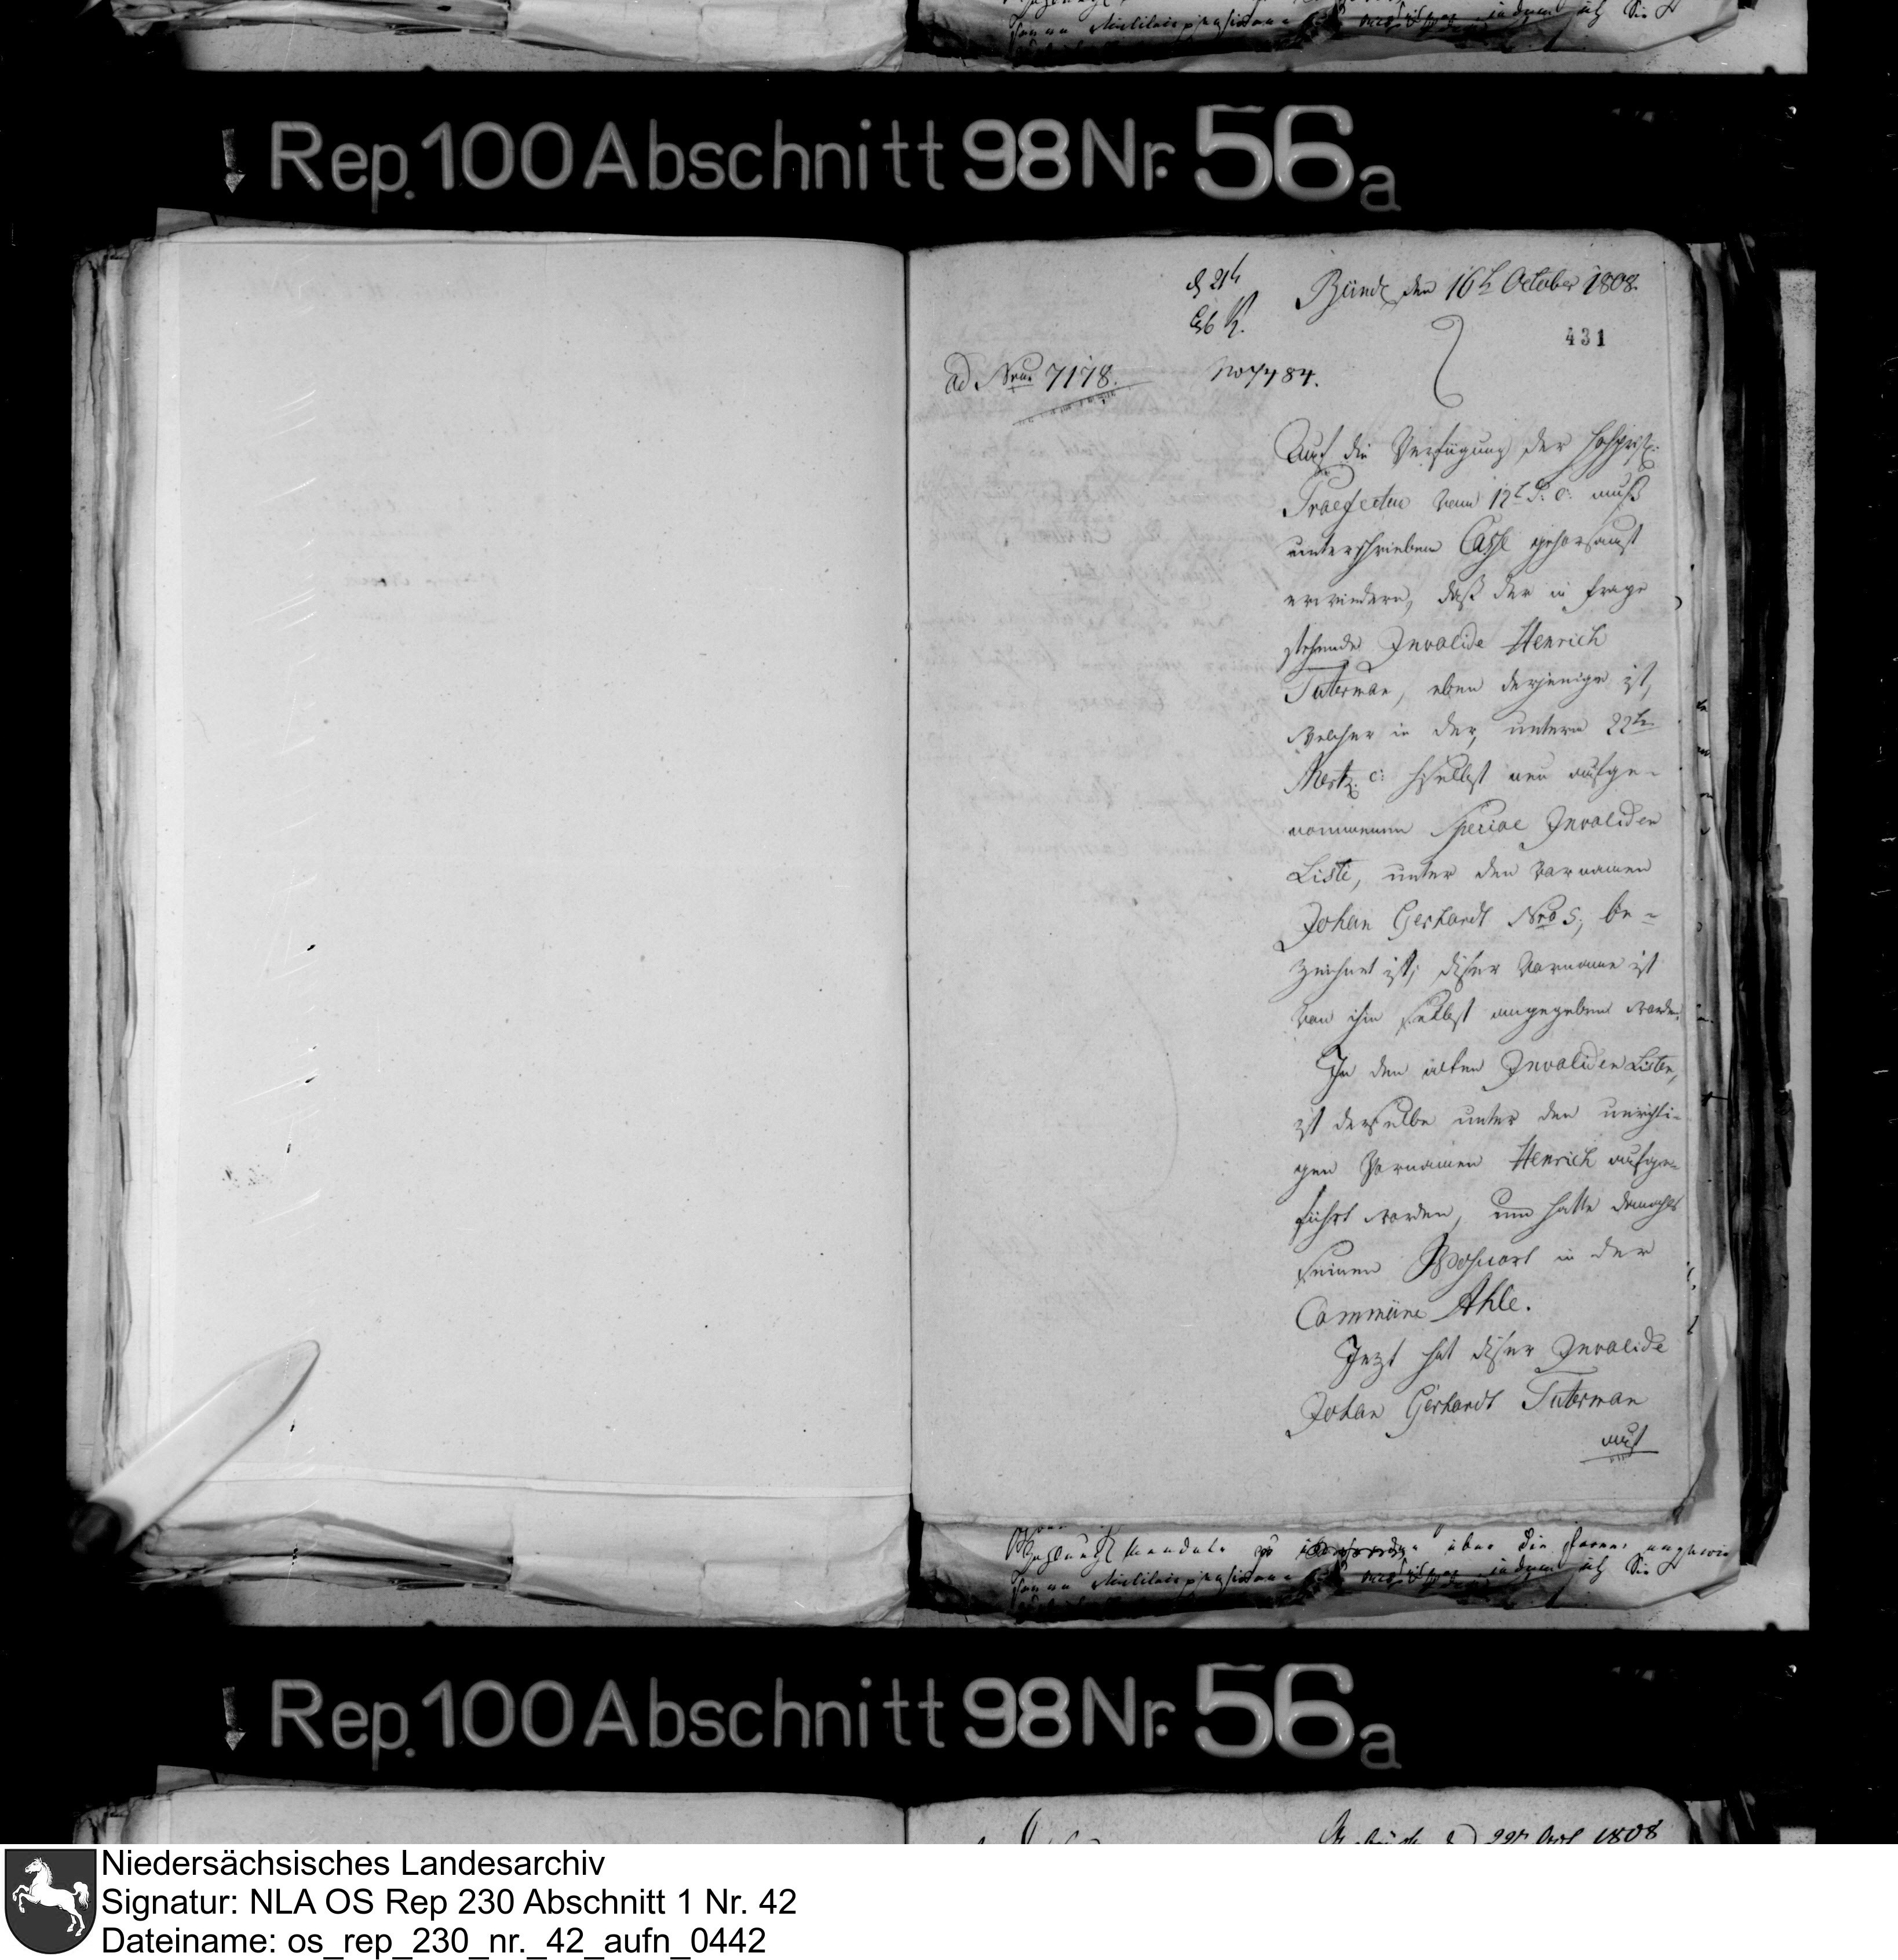 Rep. 100 Abschnitt 98 Nr. 56a
Bünde den 16t October 1808.
431
ad Nrum 7178.
No 7484.
Auf die Verfügung der
Praefectur vom 12t d. c. muß
unterschriebene Casse gehorsamst
erwiedern, daß der in Frage
stehende Invalide Henrich
Taterman, eben derjenige ist,
welcher in der, unterm 22ten
Mertz c: hieselbst neu aufge-
nommenen Special Invaliden
Liste, unter den Vornamen
Johan Gerhardt Nro 5, be-
zeichnet ist; dieser Vorname ist
von ihm selbst angegeben worden.
In den alten Invaliden Listen,
ist derselbe unter den unrichti-
gen Vornamen Henrich aufge-
führt worden, und hatte damahls
seinen Wohnort in der
Commüne Ahle.
Jezt hat dieser Invalide
Johan Gerhardt Taterman
auf
über die
Rep. 100 Abschnitt 98 Nr. 56a
1808
Niedersächsisches Landesarchiv
Signatur: NLA OS Rep 230 Abschnitt 1 Nr. 42
Dateiname: os_rep_230_nr._42_aufn_0442